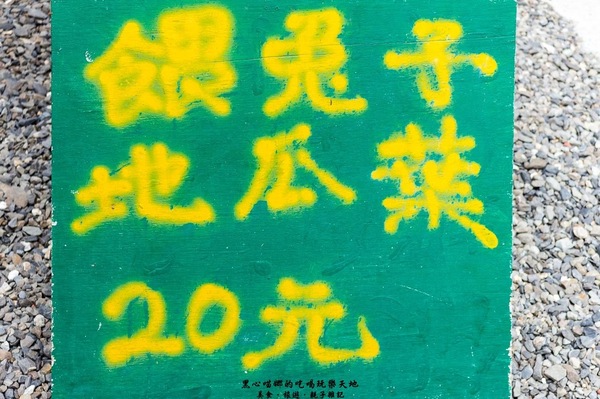 餵兔子
地瓜葉
20元
黑心喵娜的吃喝玩樂天地
美食·旅遊·親子雜記